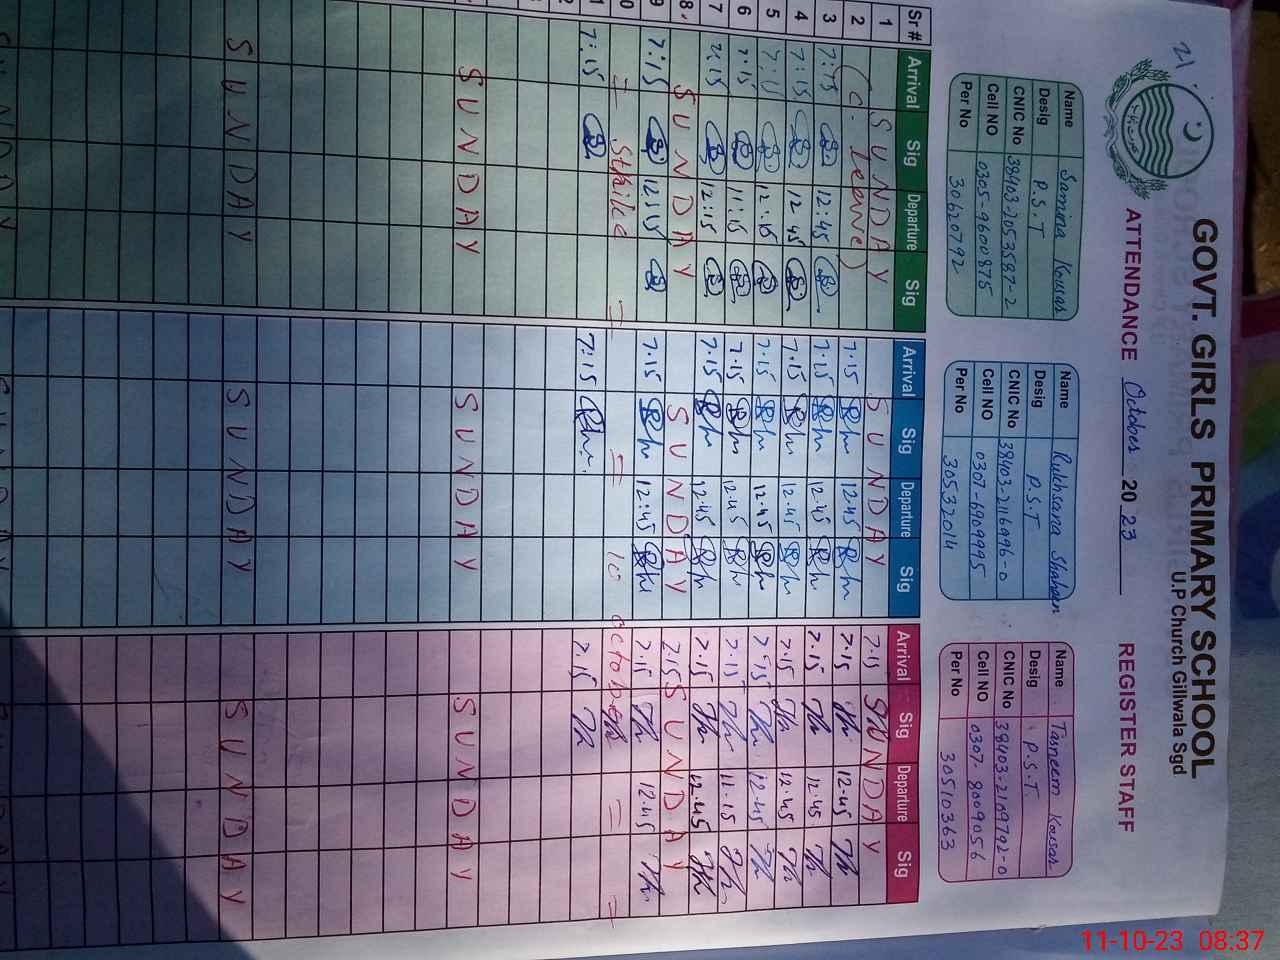 21
GOVT. GIRLS PRIMARY SCHOOL
U.P Church Gillwala Sgd
ATTENDANCE October 2023 REGISTER STAFF
Name Samina Kousar
Desig P.S.T
CNIC No 38403-2053587-2
Cell NO 0305-9600875
Per No 30620792
Name Rukhsana Shaheen
Desig P.S.T
CNIC No 38403-2116996-0
Cell NO 0307-6909995
Per No 30532014
Name Tasneem Kousar
Desig P.S.T.
CNIC No 38403-2109792-0
Cell NO 0307-8009056
Per No 30510363
Sr# Arrival Sig Departure Sig Arrival Sig Departure Sig Arrival Sig Departure Sig
1 SUNDAY SUNDAY 7.15 SUNDAY
2 (C. leave) 7.15 12.45 7.15 12.45
3 7:15 12:45 7.15 12.45 7.15 12.45
4 7:15 12:45 7.15 12.45 7.15 12.45
5 12:15 7.15 12.45 7.15 12.45
6 7:15 11:15 7.15 12.45 7.15 11.15
7 7:15 12:15 7.15 12.45 7.15 12.45
8 SUNDAY SUNDAY 7.15 SUNDAY
9 7:15 12:15 7.15 12:45 7.15 12.45
0 = = = 10 october = =
1 7:15 7:15 7.15
2
SUNDAY SUNDAY SUNDAY
SUNDAY SUNDAY SUNDAY
11-10-23 08:37